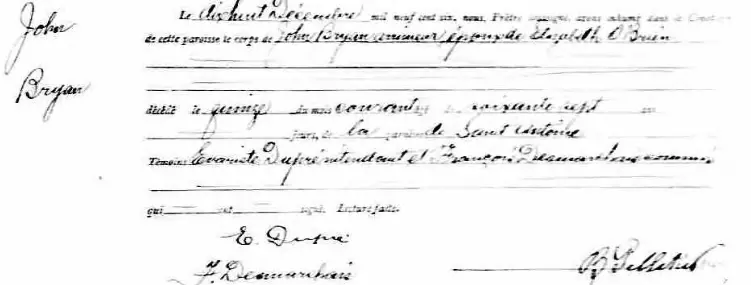 John
Bryan
Le dixhuit Décembre mil neuf cent six, nous, Prêtre soussigné, avons inhumé dans le
de cette paroisse le corps de John Bryan époux de Elizabeth O'Brien
décédé le quinze du mois courant âgé de soixante sept ans
jours, de la paroisse de Saint Antoine
Témoins Evariste Dupré intendant et François Desmarchais
qui ont signé. Lecture faite.
E. Dupré
F. Desmarchais
R Pelletier